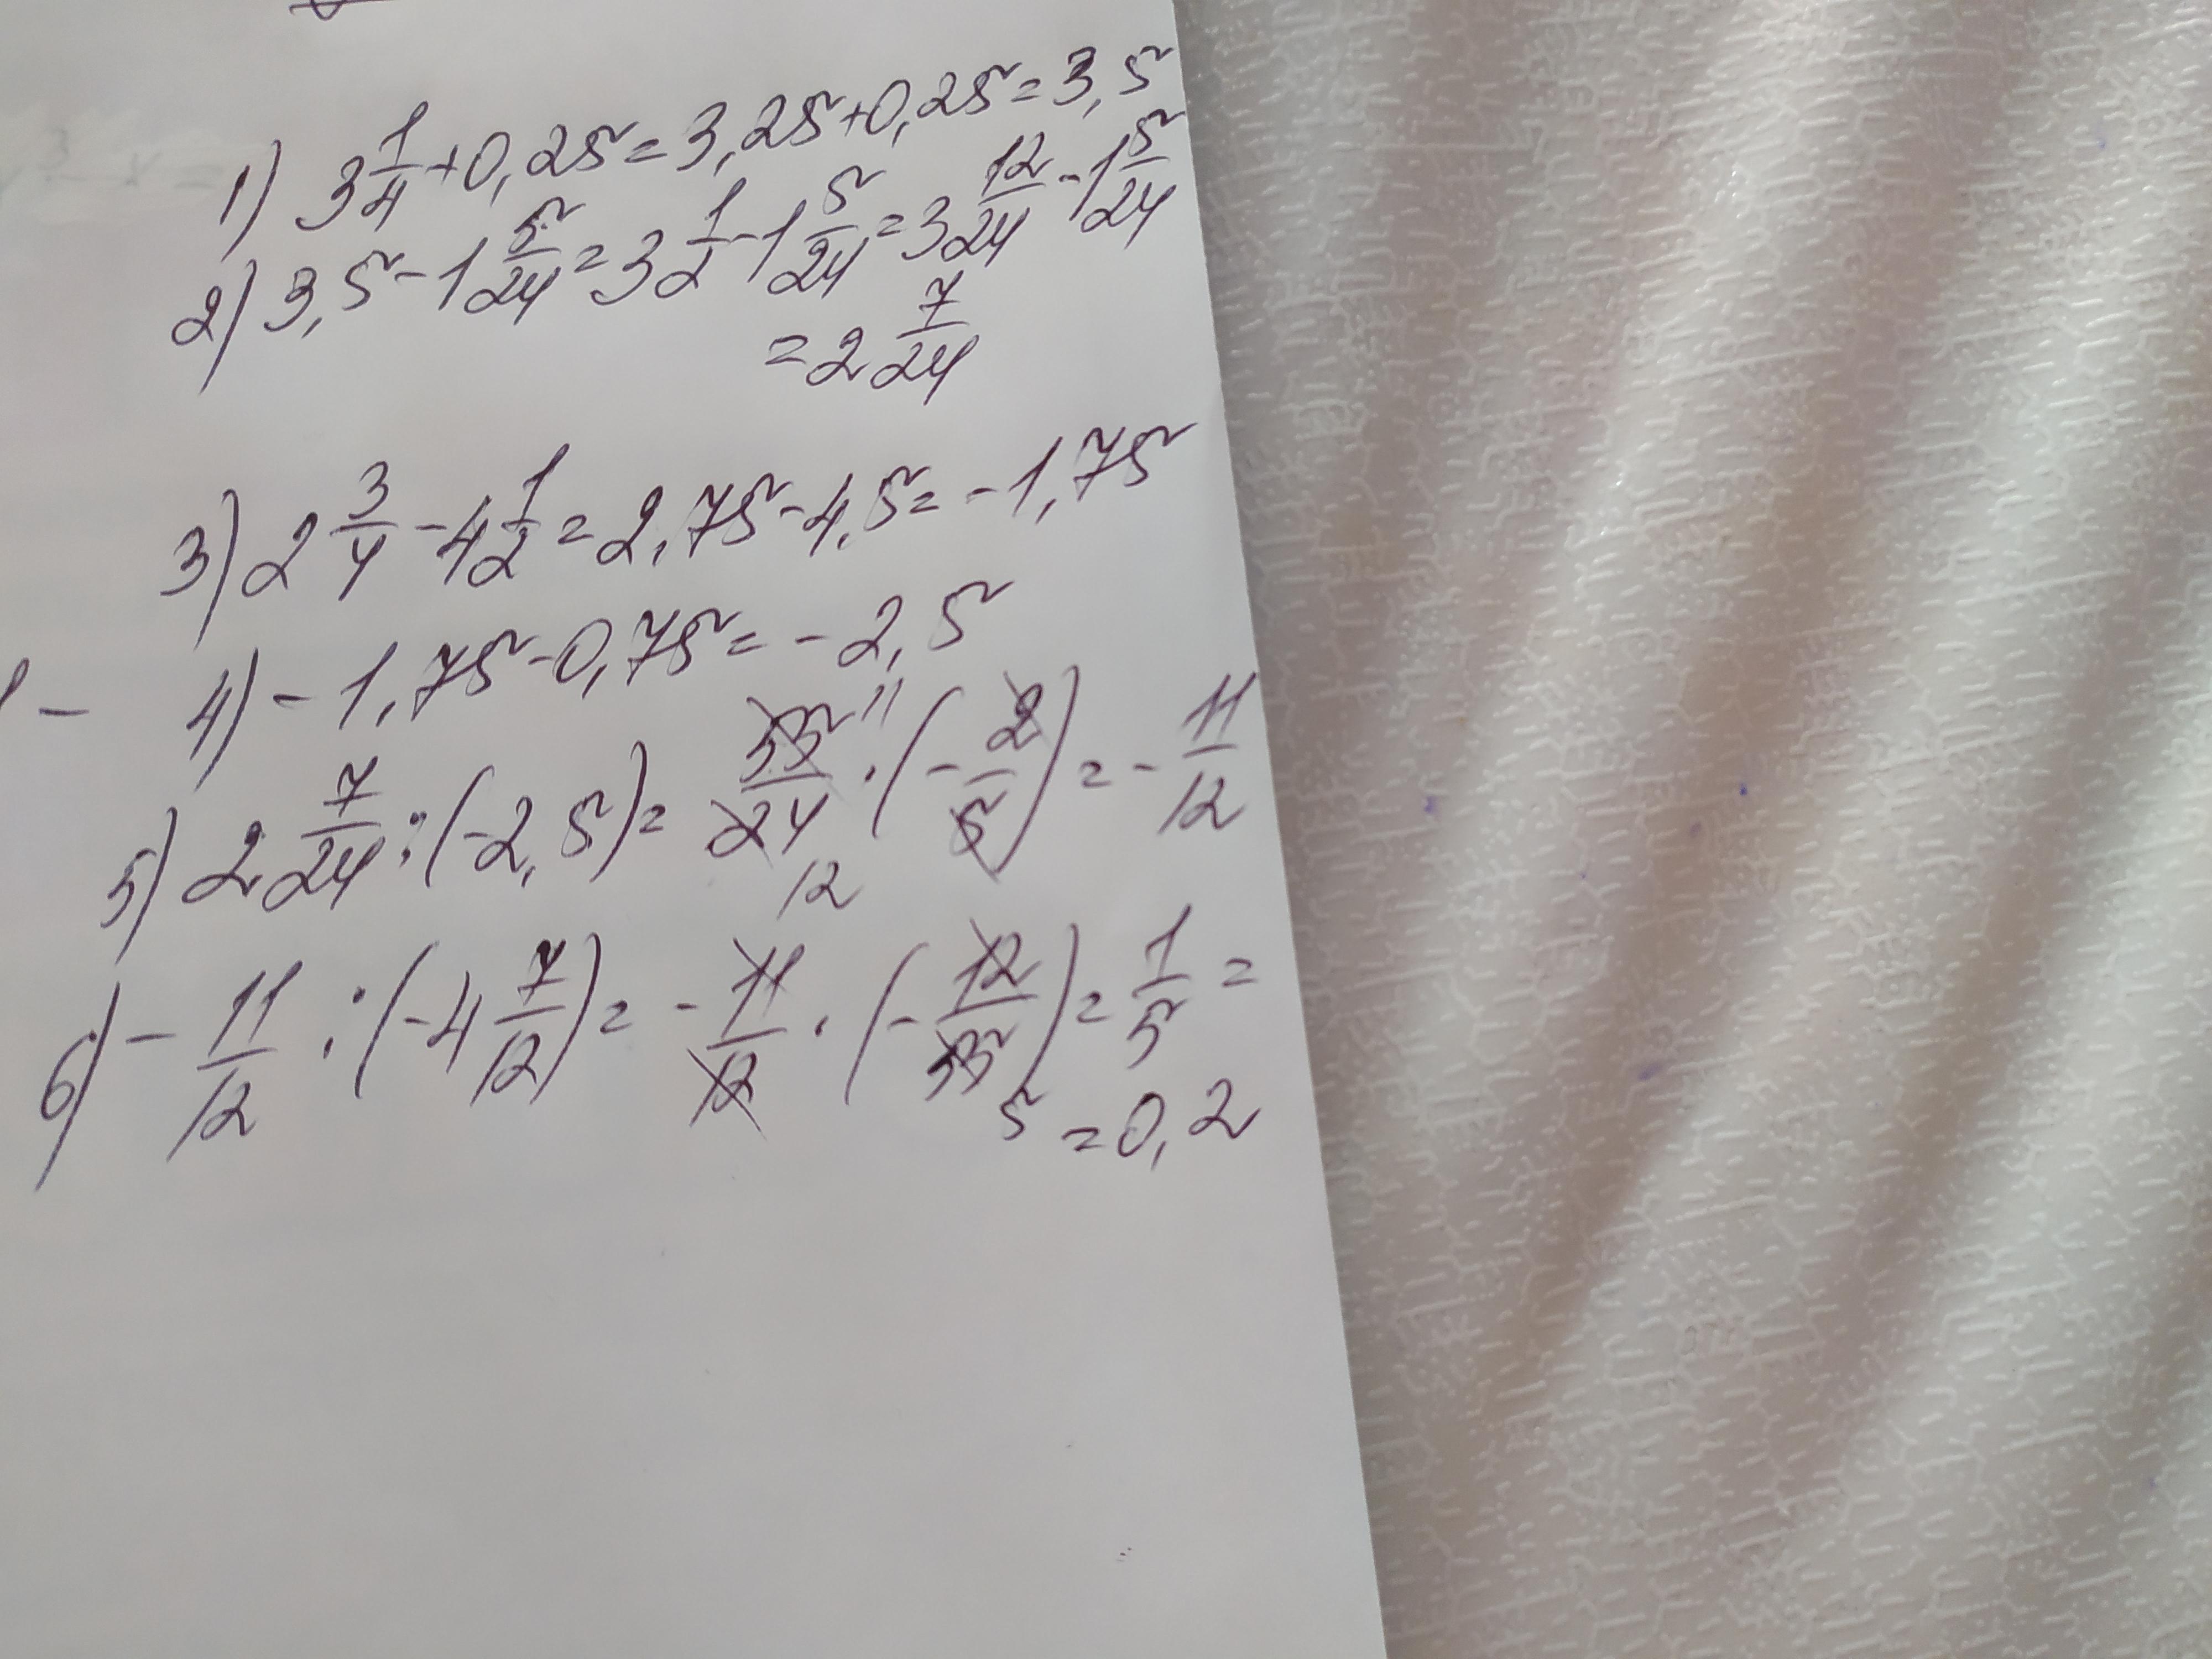 1) 3 1/4 + 0,25 = 3,25 + 0,25 = 3,5
2) 3,5 - 1 5/24 = 3 1/2 - 1 5/24 = 3 12/24 - 1 5/24
= 2 7/24
3) 2 3/4 - 4 1/2 = 2,75 - 4,5 = -1,75
4) -1,75 - 0,75 = -2,5
5) 2 7/24 : (-2,5) = 55/24 · (-2/5) = -11/12
11
12
6) -11/12 : (-4 7/12) = -11/12 · (-12/55) = 1/5 =
5 = 0,2